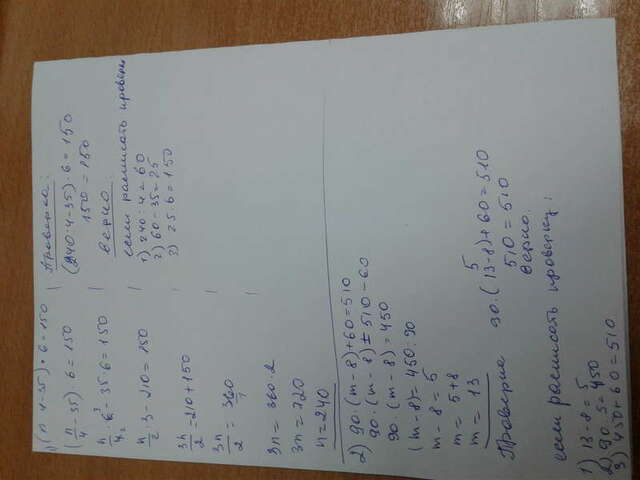 1) (n : 4-35) · 6 = 150
(n/4 - 35) · 6 = 150
n/4 · 6 - 35 · 6 = 150
n/2 · 3 - 210 = 150
3n/2 = 210 + 150
3n/2 = 360
3n = 360 · 2
3n = 720
n = 240
Проверка:
(240:4-35) · 6 = 150
150 = 150
верно
если расписать
1) 240 : 4 = 60
2) 60 - 35 = 25
3) 25 · 6 = 150
2) 90 · (m - 8) + 60 = 510
90 · (m - 8) = 510 - 60
90 (m - 8) = 450
(m - 8) = 450 : 90
m - 8 = 5
m = 5 + 8
m = 13
Проверка
5
90 · (13 - 8) + 60 = 510
510 = 510
верно.
если расписать проверку:
1) 13 - 8 = 5
2) 90 · 5 = 450
3) 450 + 60 = 510